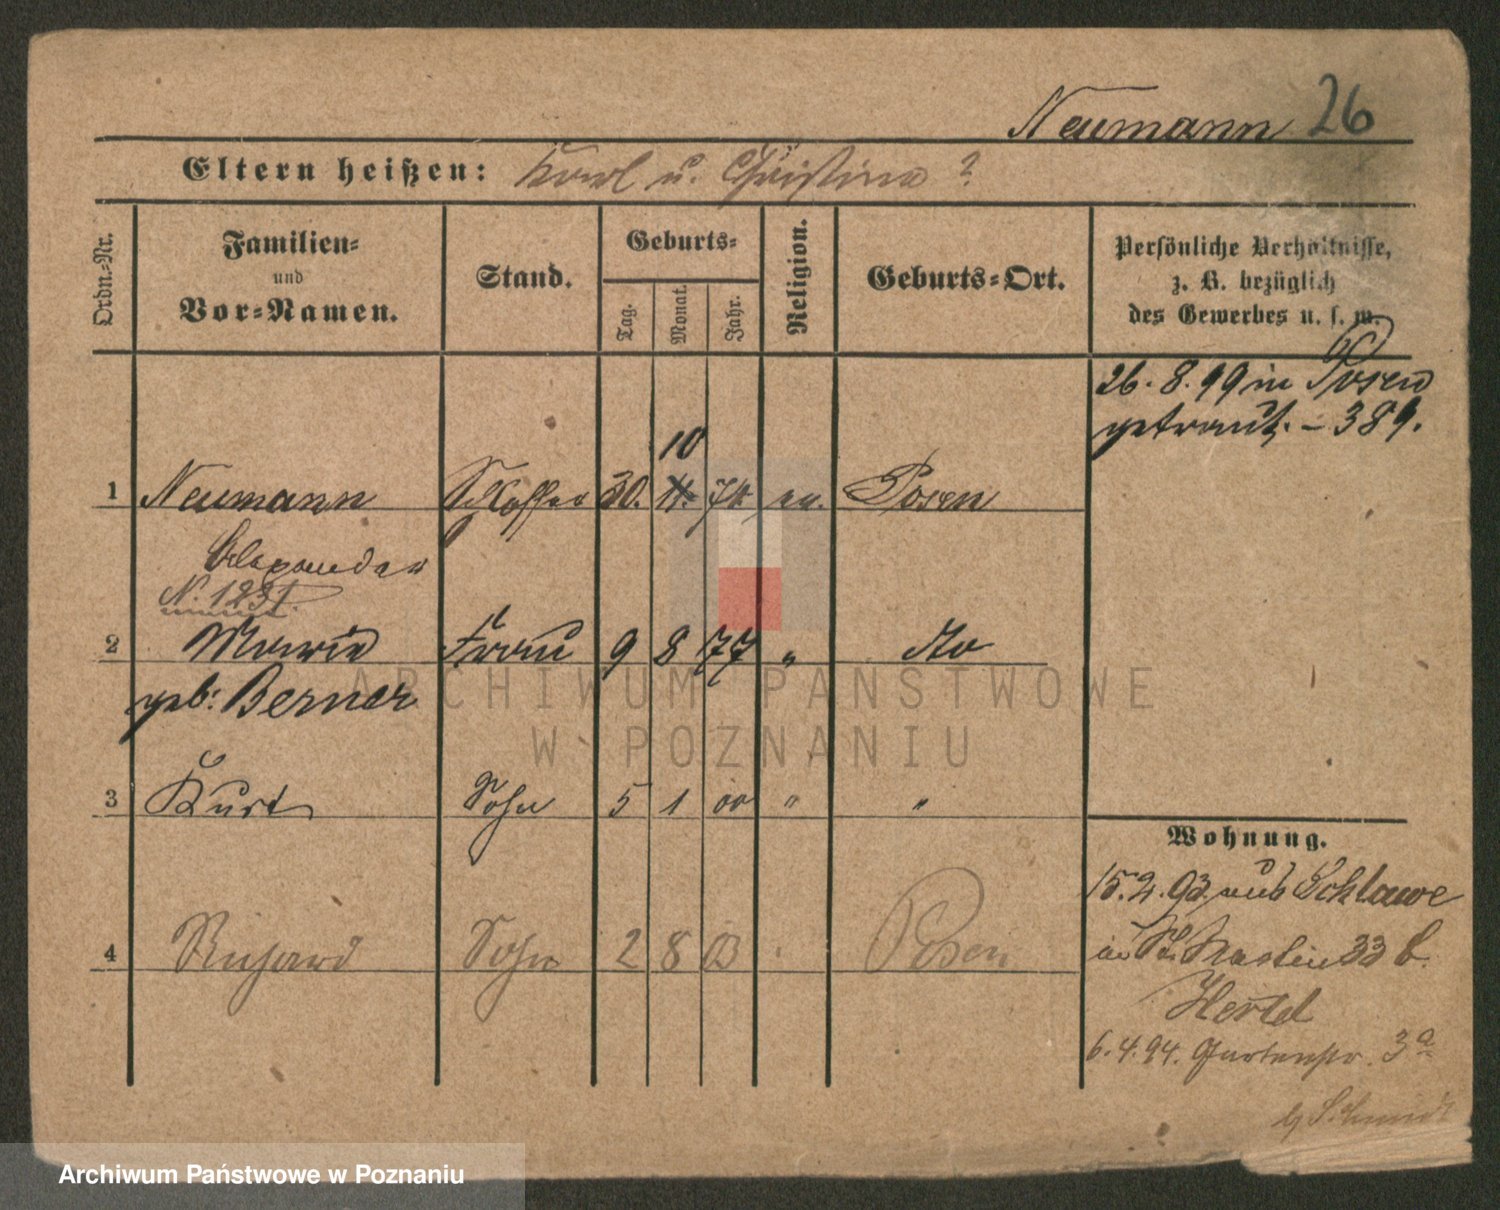 Neumann 26
Eltern heißen: Karl u. Christina ?
Ordn.-Nr.
Familien-
und
Vor-Namen.
Stand.
Geburts-
Tag.
Monat.
Jahr.
Religion.
Geburts-Ort.
Persönliche Verhältnisse,
z. B. bezüglich
des Gewerbes u. s. w.
26. 8. 99 in Posen
getraut. - 389.
10
1 Neumann Schlosser 30. 11. 74 ev. Posen
Alexander
N. 1231
2 Marie Frau 9 8 77 " do
geb: Berner
3 Kurt Sohn 5 1 00 " "
4 Richard Sohn 2 8 Posen
Wohnung.
15. 2. 93. aus Schlawe
in St. Martin 33 b.
Hertel
6. 4. 94. Gartenstr. 3a
b/ Schmidt
ARCHIWUM PAŃSTWOWE
W POZNANIU
Archiwum Państwowe w Poznaniu